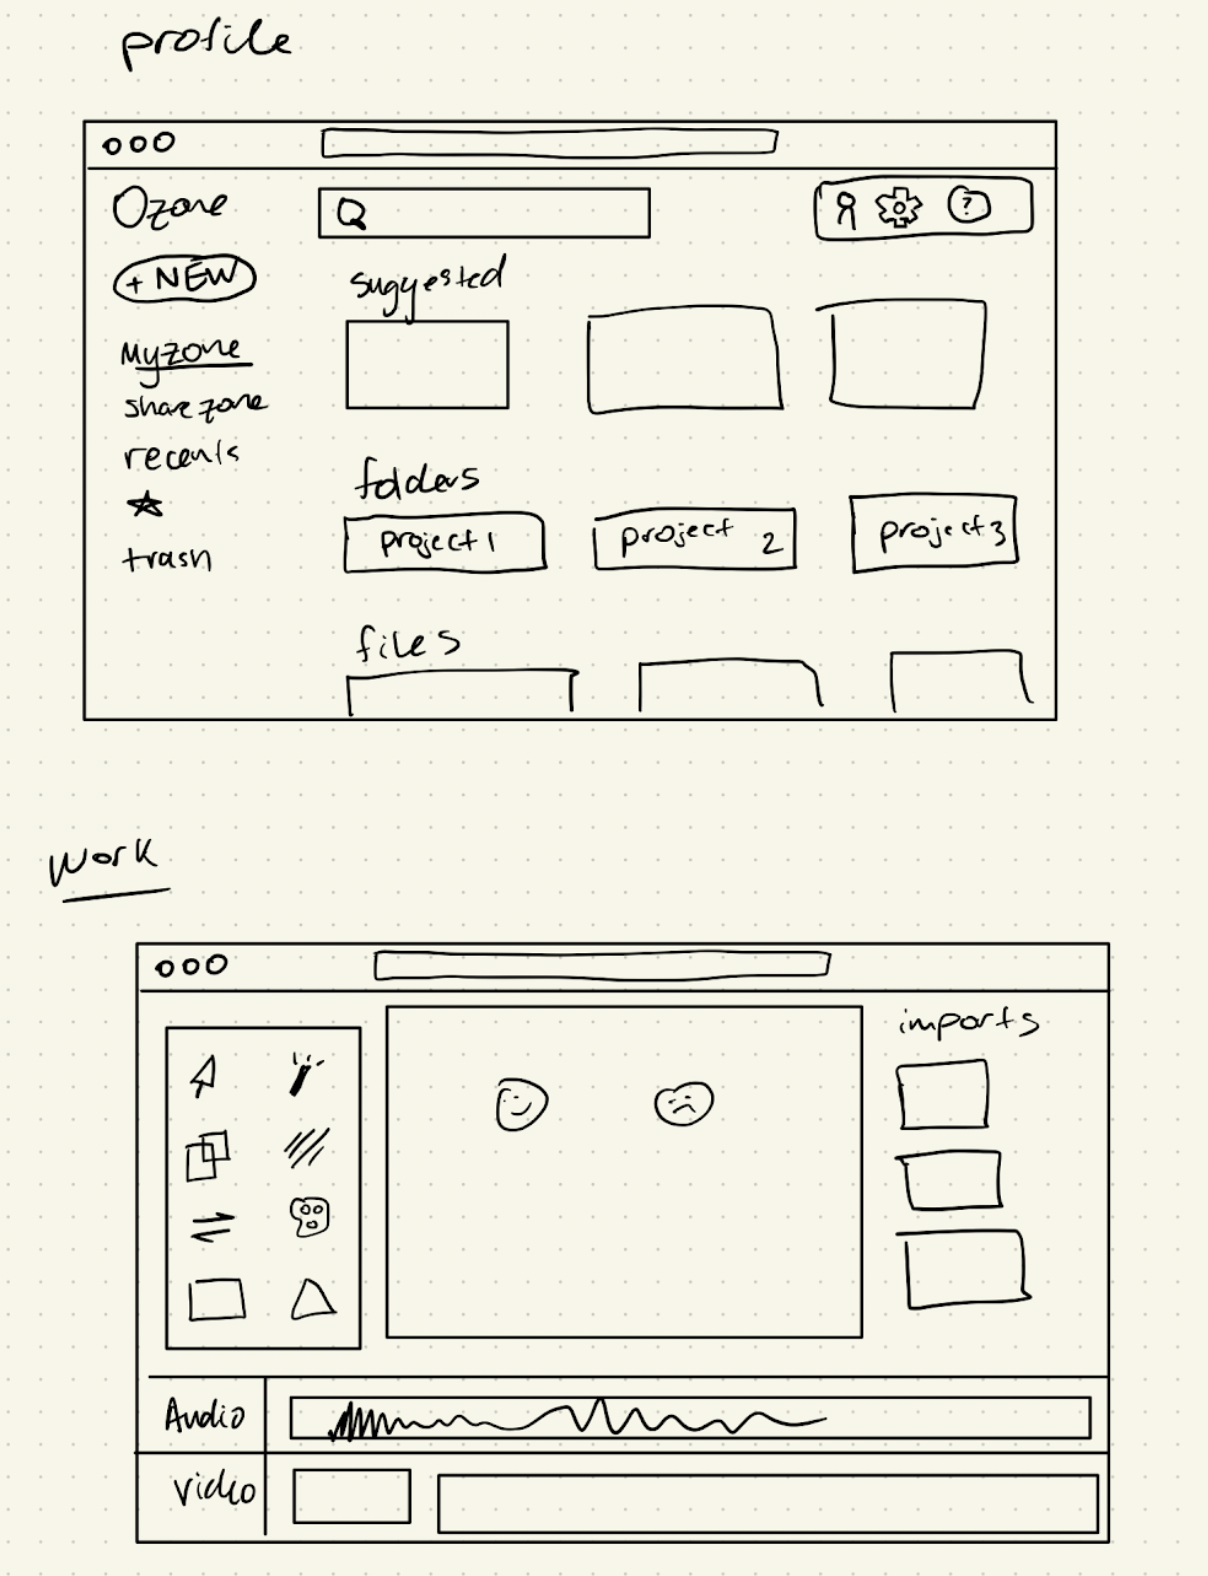 profile
Ozone
+ NEW
Myzone
sharezone
recents
trash
?
suggested
folders
project 1
project 2
project 3
files
Work
imports
Audio
Video